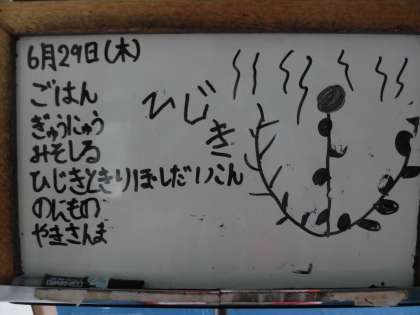 6月29日(木)
ごはん
ぎゅうにゅう
みそしる
ひじきときりぼしだいこん
のにもの
やきさんま
ひじき